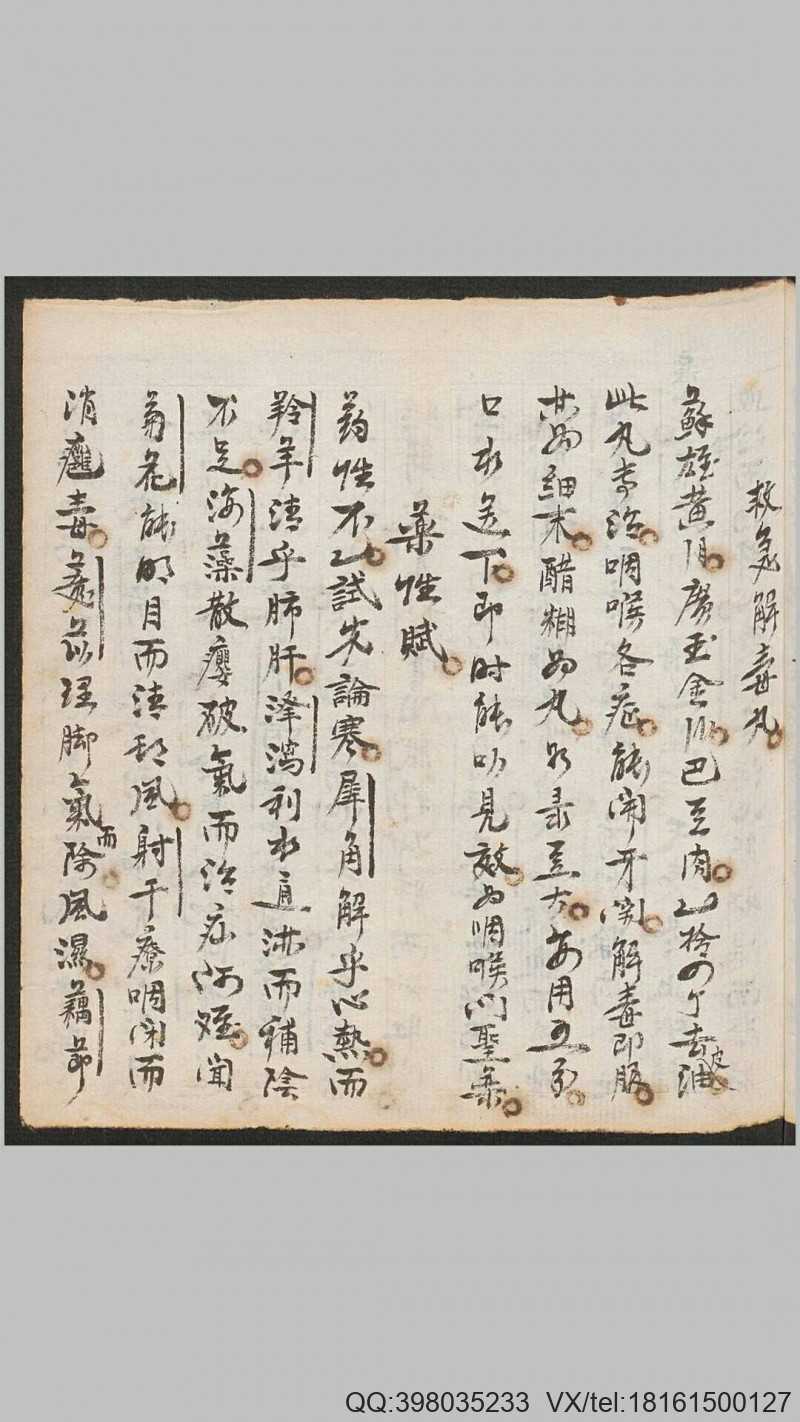 救急解毒丸
蘇雄黃 廣玉金 巴豆肉 去油皮
此丸專治咽喉各症能開牙関解毒即服
共为細末醋糊为丸如菉豆大每用五分
口水送下即时能叨見效为咽喉門聖藥
藥性賦
药性不一試先論寒犀角解乎心熱而
羚羊清乎肺肝澤瀉利水通淋而補陰
不足海藻散癭破氣而治疝何难聞
菊花能明目而清頭風射干療咽闭而
消癰毒薏苡理脚氣而除風濕藕節
QQ:398035233 VX/tel:18161500127